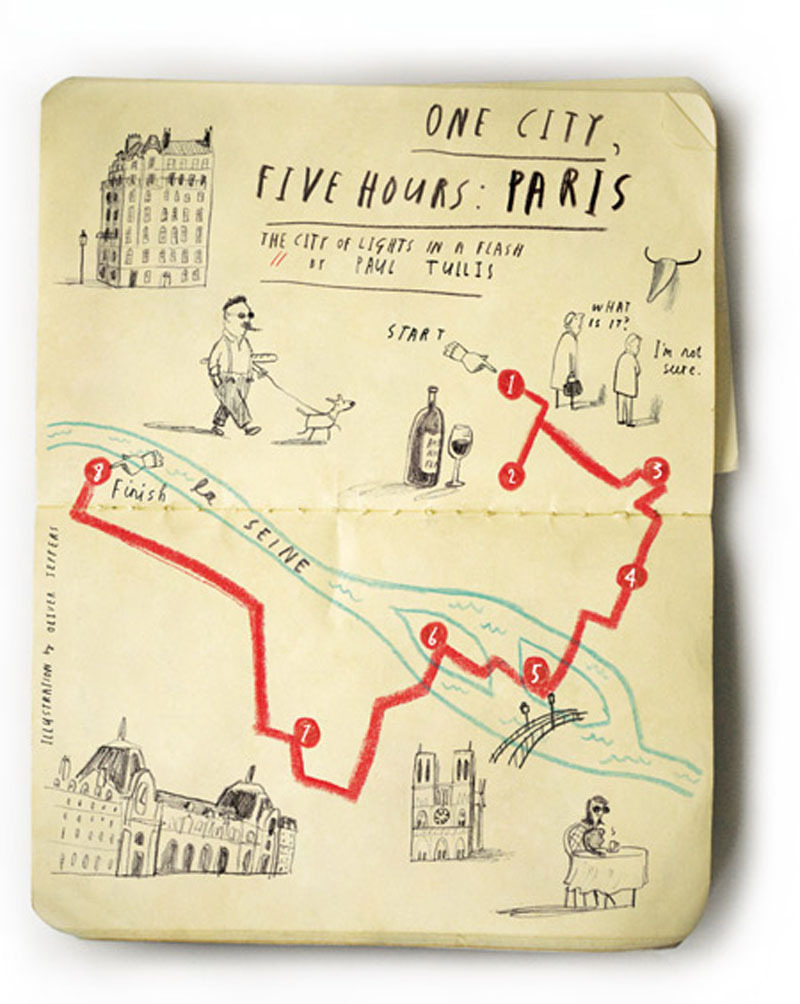 ONE CITY,
FIVE HOURS: PARIS
THE CITY OF LIGHTS IN A FLASH
// BY PAUL TULLIS
START
WHAT
IS IT?
I'm not
sure.
1
2
3
8
Finish
la SEINE
4
6
5
7
ILLUSTRATION by OLIVER JEFFERS